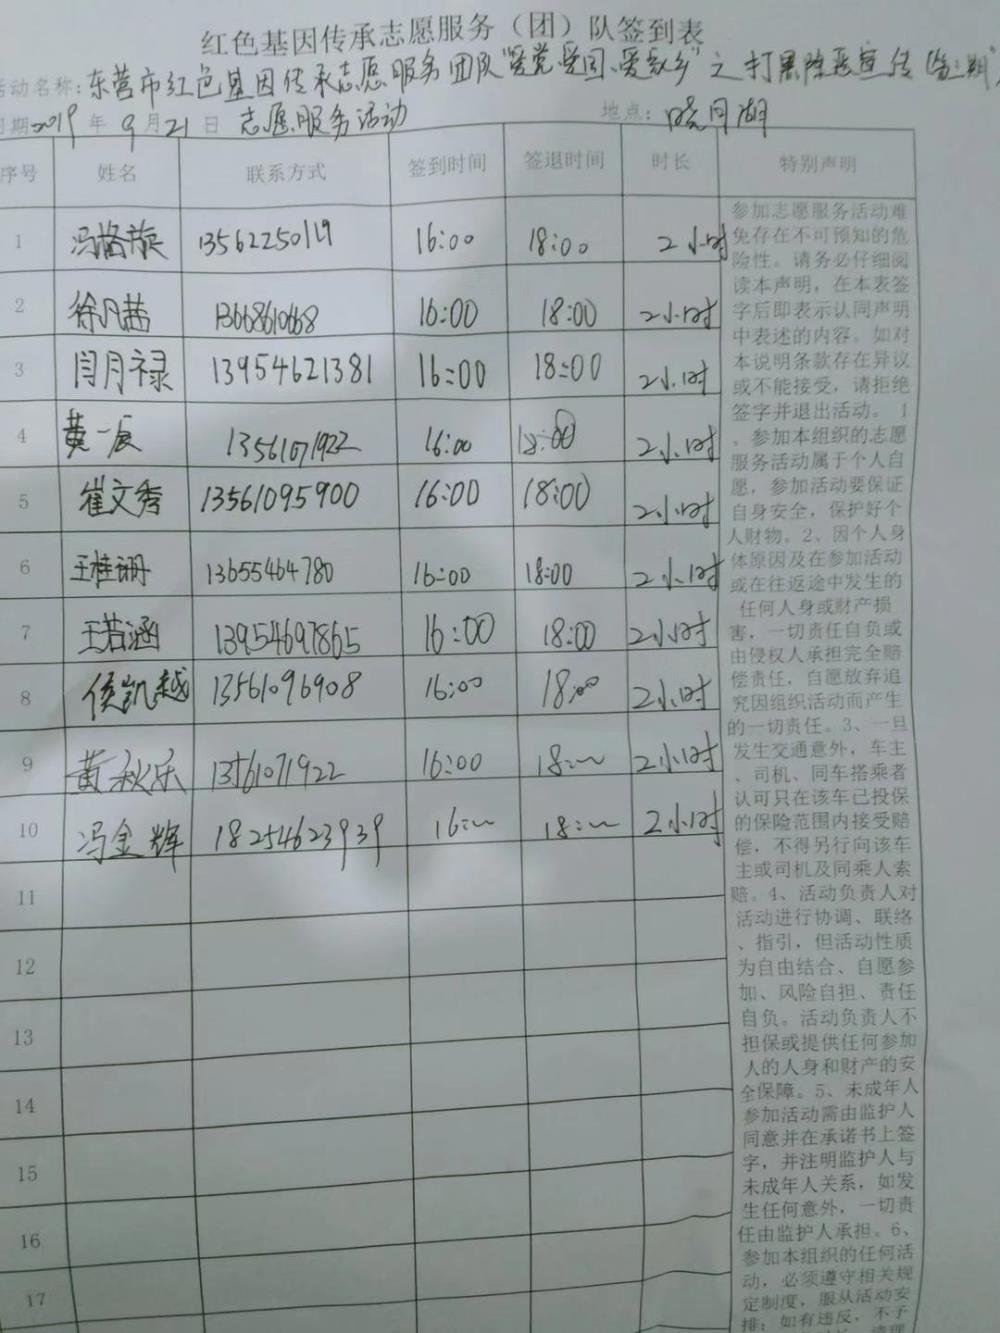 红色基因传承志愿服务（团）队签到表
活动名称：东营市红色基因传承志愿服务团队“爱党爱国、爱家乡”之打黑除恶宣传
日期2019年9月21日 志愿服务活动 地点：晓月湖
序号 姓名 联系方式 签到时间 签退时间 时长 特别声明
1 13562250119 16:00 18:00 2小时
2 徐凡茜 13668610668 16:00 18:00 2小时
3 闫月禄 13954621381 16:00 18:00 2小时
4 黄一辰 13561071922 16:00 18:00 2小时
5 崔文秀 13561095900 16:00 18:00 2小时
6 王桂珊 13655464780 16:00 18:00 2小时
7 王若涵 13954697865 16:00 18:00 2小时
8 侯凯越 13561096908 16:00 18:00 2小时
9 黄秋乐 13561071922 16:00 18:00 2小时
10 冯金辉 18254623939 16:00 18:00 2小时
11
12
13
14
15
16
17
参加志愿服务活动难
免存在不可预知的危
险性。请务必仔细阅
读本声明，在本表签
字后即表示认同声明
中表述的内容。如对
本说明条款存在异议
或不能接受，请拒绝
签字并退出活动。1
、参加本组织的志愿
服务活动属于个人自
愿，参加活动要保证
自身安全，保护好个
人财物。2、因个人身
体原因及在参加活动
或在往返途中发生的
任何人身或财产损
害，一切责任自负或
由侵权人承担完全赔
偿责任，自愿放弃追
究因组织活动而产生
的一切责任。3、一旦
发生交通意外，车主
、司机、同车搭乘者
认可只在该车已投保
的保险范围内接受赔
偿，不得另行向该车
主或司机及同乘人索
赔。4、活动负责人对
活动进行协调、联络
、指引，但活动性质
为自由结合、自愿参
加、风险自担、责任
自负。活动负责人不
担保或提供任何参加
人的人身和财产的安
全保障。5、未成年人
参加活动需由监护人
同意并在承诺书上签
字，并注明监护人与
未成年人关系，如发
生任何意外，一切责
任由监护人承担。6、
参加本组织的任何活
动，必须遵守相关规
定制度，服从活动安
排；如有违反，不予